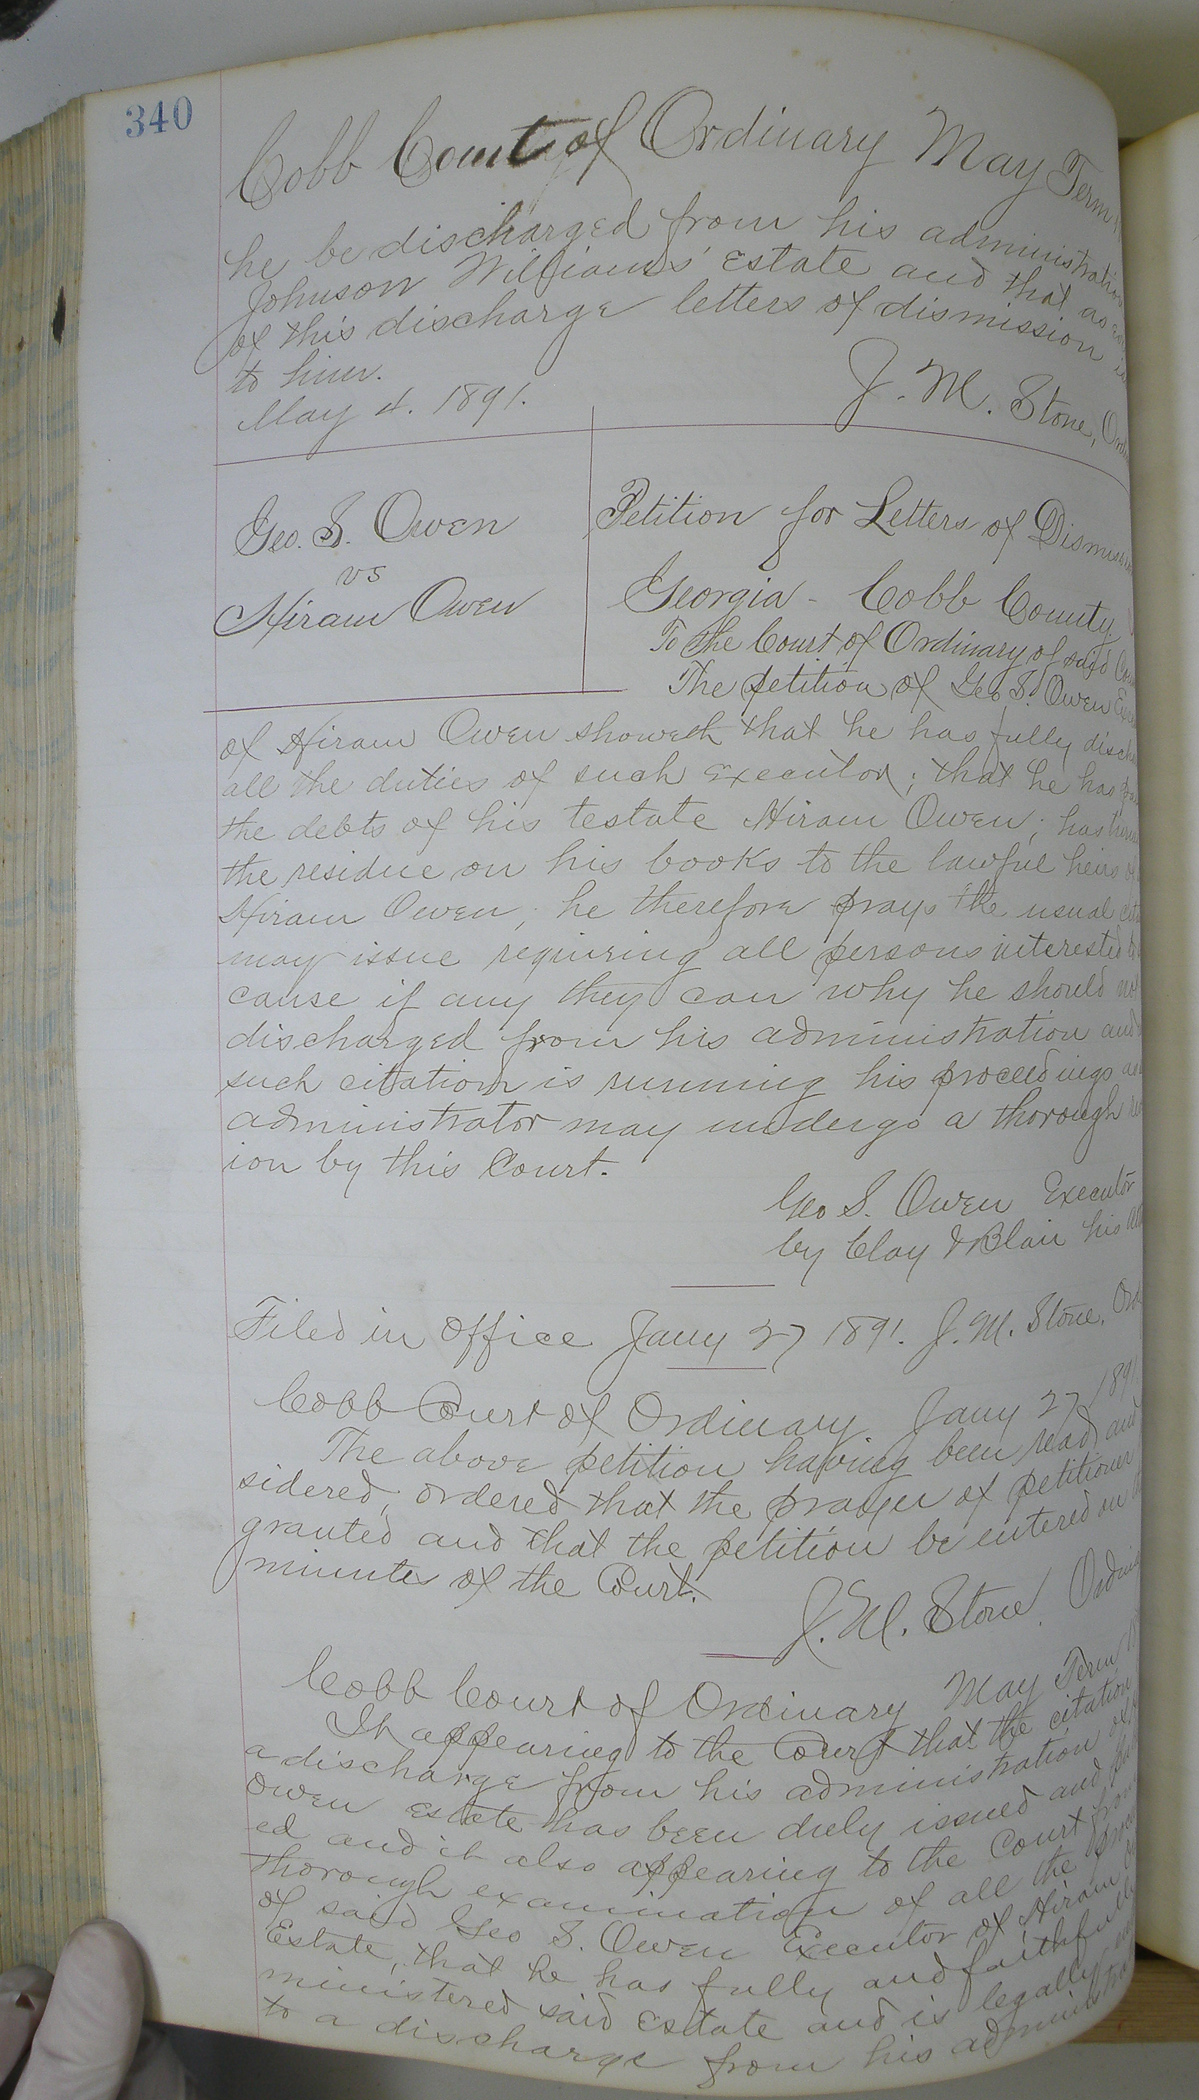 340
Cobb Court of Ordinary May Term
he be discharged from his administration
Johnson Williams' Estate and that as
of this discharge letters of dismission
to him.
May 4. 1891.
J. M. Stone,
Geo. S. Owen
vs
Hiram Owen
Petition for Letters of Dismiss
Georgia - Cobb County
To the Court of Ordinary of said
The petition of Geo S. Owen
of Hiram Owen showeth that he has fully disch
all the duties of such executor; that he has
the debts of his testate Hiram Owen; has
the residue on his books to the lawful heirs
Hiram Owen, he therefore prays the usual
may issue requiring all persons interested
cause if any they can why he should not
discharged from his administration and
such citation is running his proceedings as
administrator may undergo a thorough
ion by this Court.
Geo S. Owen Executor
by Clay & Blair his
Filed in office Jany 27 1891. J. M. Stone, Ord
Cobb Court of Ordinary. Jany 27 1891
The above petition having been read and
sidered, ordered that the prayer of petitioner
granted and that the petition be entered on
minutes of the Court.
J. M. Stone, Ordin
Cobb Court of Ordinary May Term
It appearing to the Court that the citation
a discharge from his administration of
Owen estate has been duly issued and
ed and it also appearing to the Court from
thorough examination of all the
of said Geo S. Owen Executor of Hiram
Estate, that he has fully and faithfully
ministered said estate and is legally
to a discharge from his administra